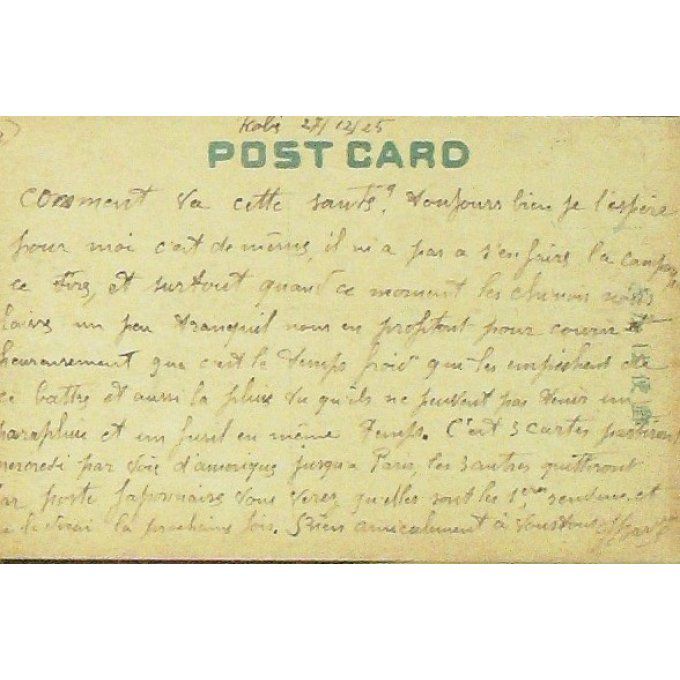 Kobé 27/12/25
POST CARD
Comment va cette santé? toujours bien je l'espère
pour moi c'est de même, il n'a pas a s'en faire la
ce tire, et surtout quand ce moment les chinois nous
laisse un peu tranquil nous en profitont pour courir
heureusement que c'est le temps froid qui les empêchent de
ce battre et aussi la pluie vu qu'ils ne peuvent pas tenir un
parapluie et un fusil en même temps. C'est 3 cartes partiront
mercredi par voie d'amerique jusqu'a Paris, les 3 autres quitteront
par poste Japonnaire vous verez qu'elles sont les 1ères rendue et
la prochaine fois. Bien amicalement à vous tous